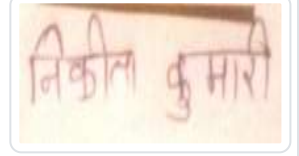 निकीता कुमारी